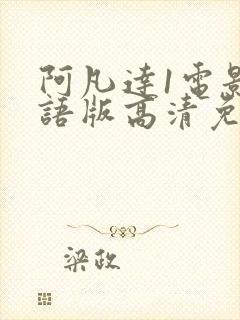 阿凡達1電影
語版高清免
梁政